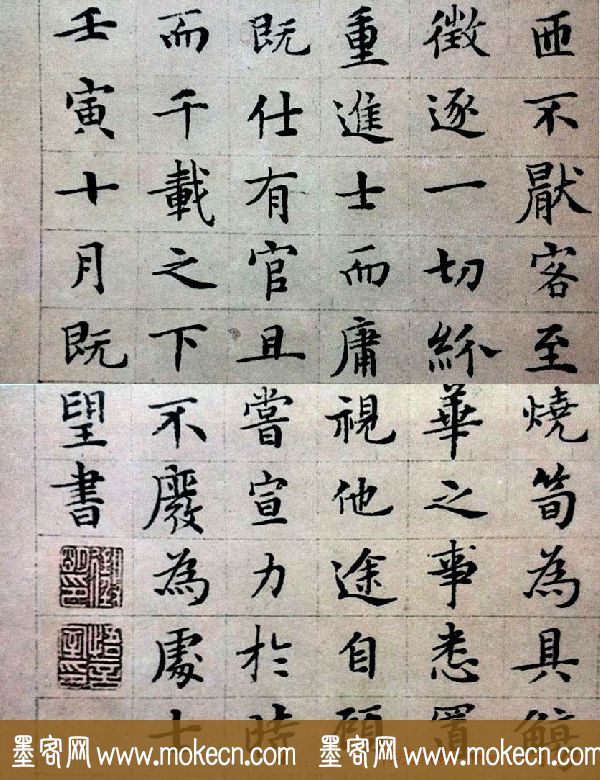 匝不厭客至燒筍為具
徵逐一切紛華之事悉置
重進士而庸視他途自顧
既仕有官且嘗宣力於時
而千載之下不廢為處士
壬寅十月既望書
墨客网 www.mokecn.com 墨客网 www.mokecn.com